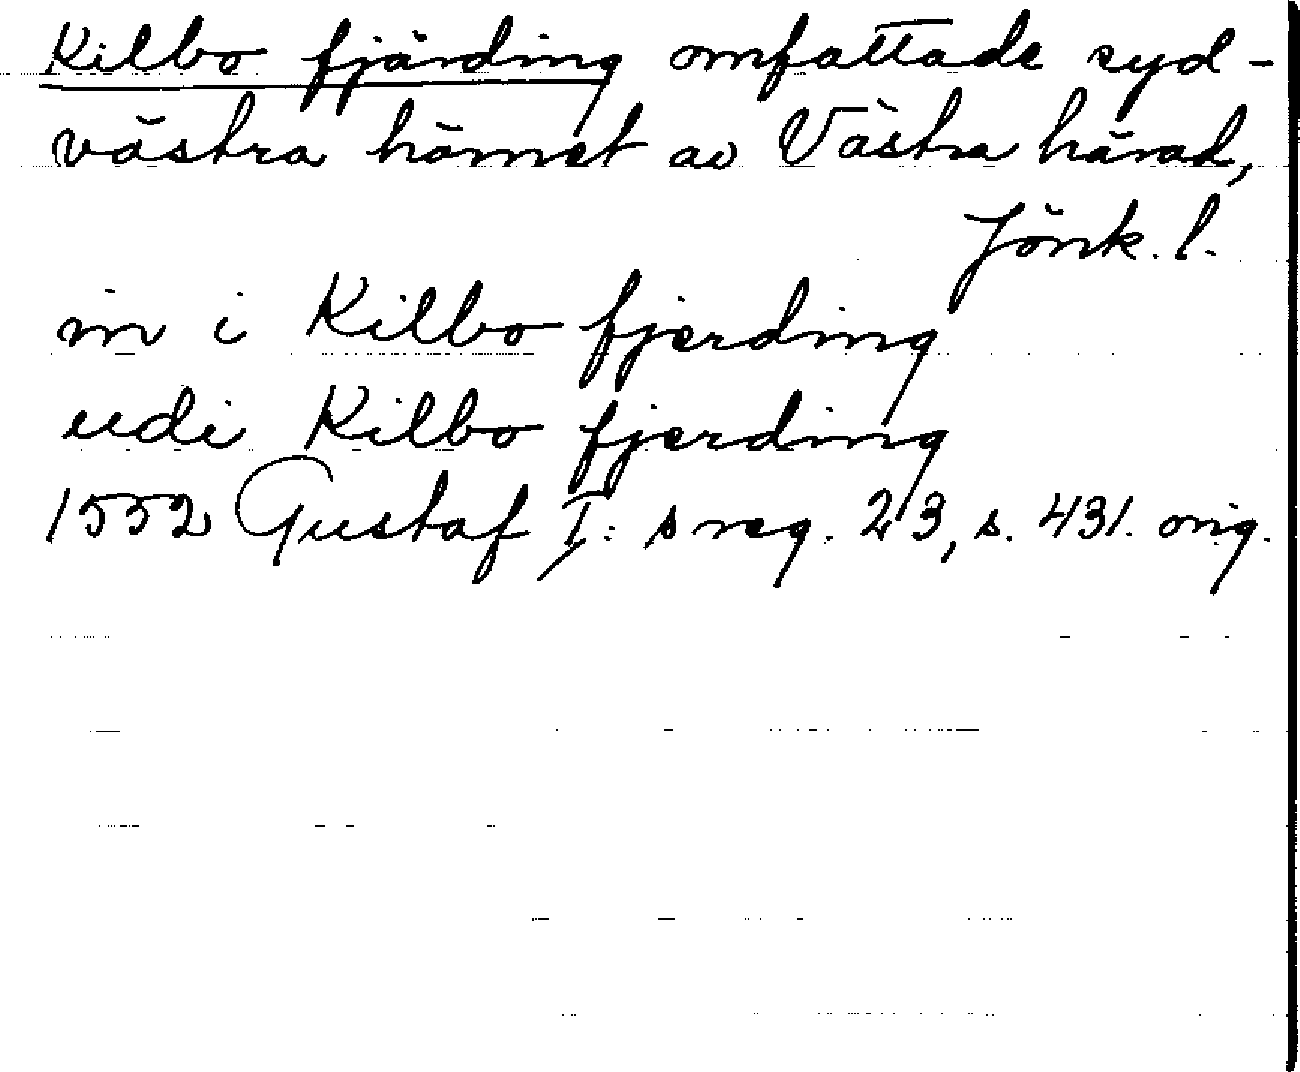 Kilbo fjärding omfattade syd-
västra hörnet av Västra härad,
Jönk. l.
in i Kilbo fjerding
udi Kilbo fjerding
1552 Gustaf I: s reg. 23, s. 431. orig.